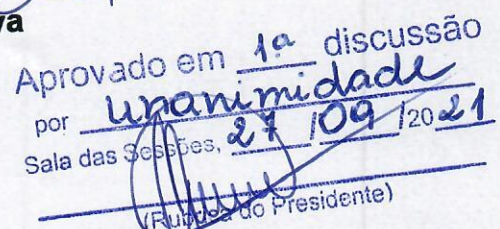 va
Aprovado em 1ª discussão
por unanimidade
Sala das Sessões, 27 /09 /2021
(Rubrica do Presidente)